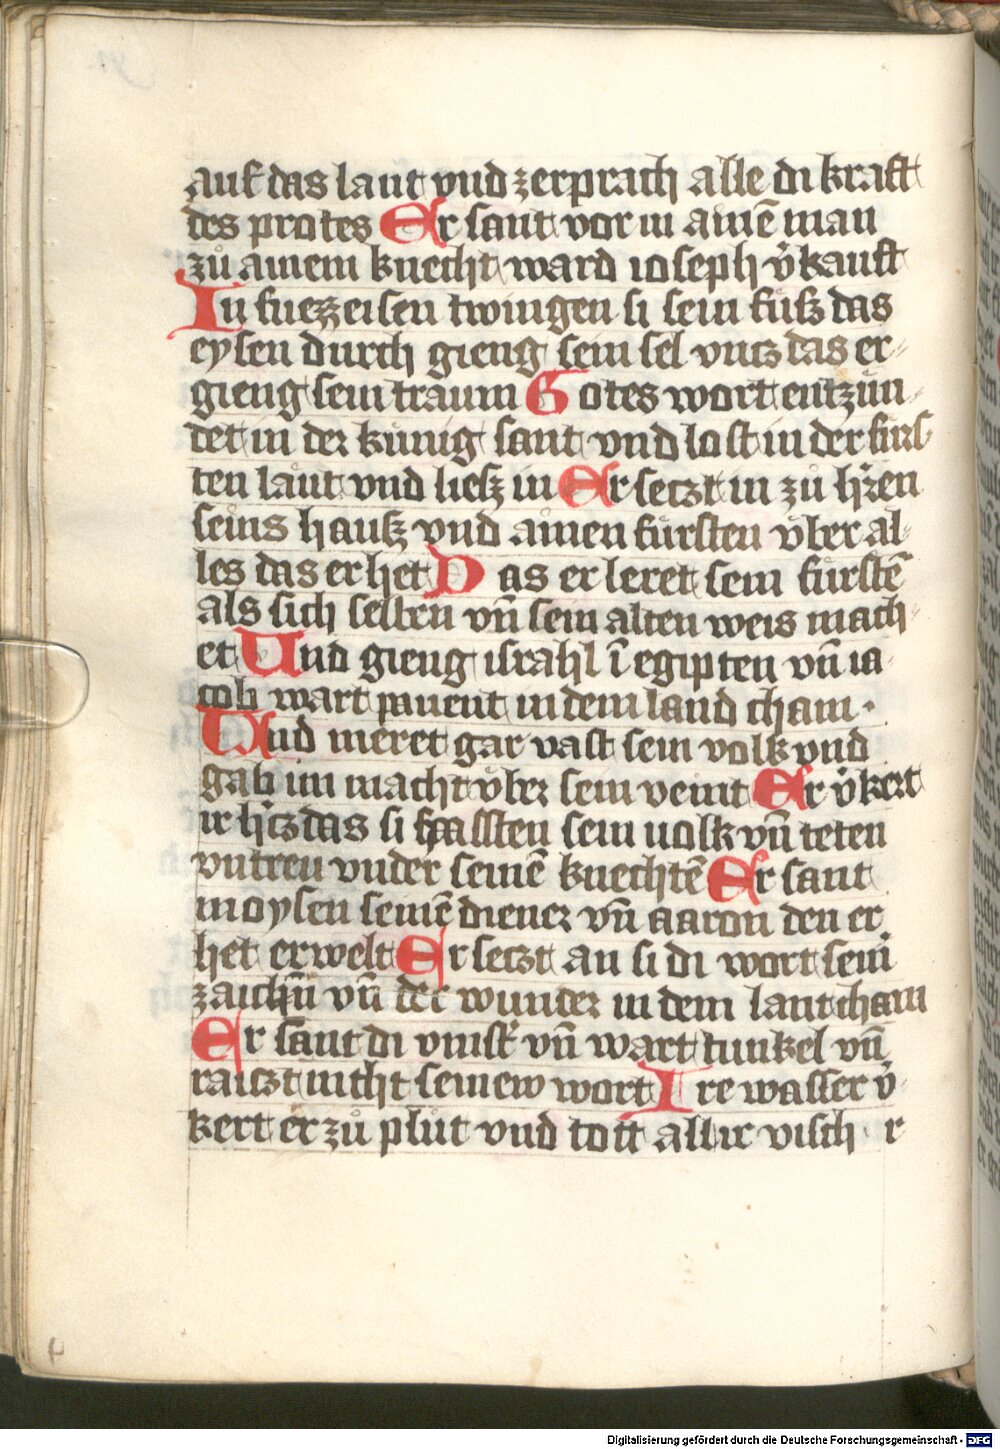 auf das lant vnd zerprach alle di kraft
des protes Er sant vor in ainē man
zů ainem knecht ward ioseph v̓kauft
In fuezzeisen twingen si sein fuͤß das
eysen durch gieng sein sel vncz das er-
gieng sein traum Gotes wort entzun-
det in der kunig sant vnd lost in der furs-
ten laut vnd liesz in Er seczt in zů h̓ren
seins hausz vnd ainen fursten vber al-
les das er het Das er leret sein furstē
als sich selben vn̄ sein alten weis mach-
et Und gieng israhl ī egipten vn̄ ia-
cob wart pauent in dem land cham.
Und meret gar vast sein volk vnd
gab im macht vber sein veint Er v̓kert
ir h̓cz das si hassten sein uolk vn̄ teten
vntreu vnder seinē knechtē Er sant
moysen seinē diener vn̄ aaron den er
het erwelt Er seczt an si di wort seiner
zaichn̄ vn̄ der wunder in dem lant cham
Er sant di vinst̓ vn̄ wart tunkel vn̄
raiczt nicht seinew wort Ire wasser v̓-
kert er zů plůt vnd toit all ir visch r
Digitalisierung gefördert durch die Deutsche Forschungsgemeinschaft - DFG